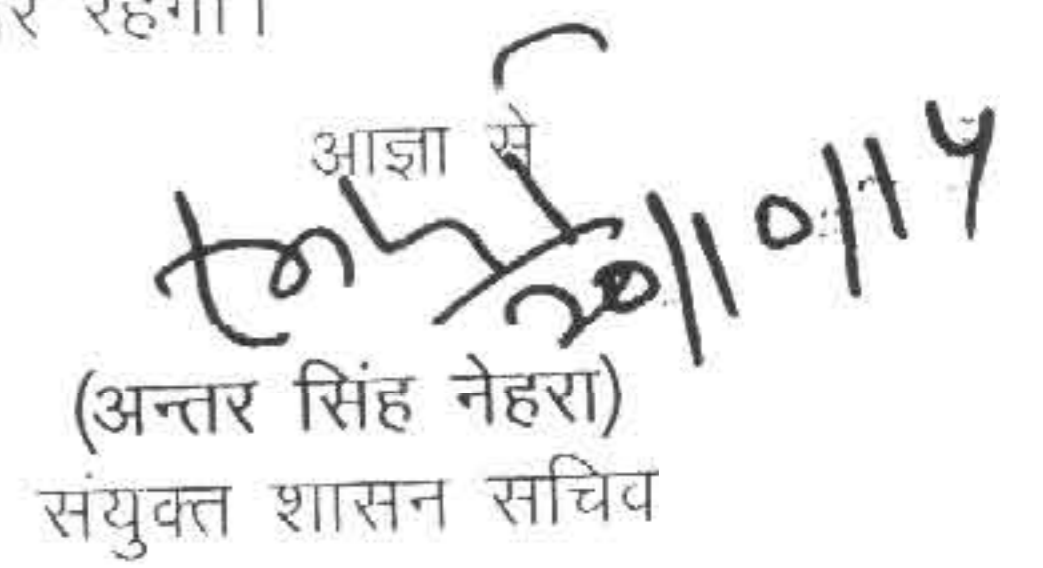 रहेगा।
आज्ञा से
20/10/14
(अन्तर सिंह नेहरा)
संयुक्त शासन सचिव